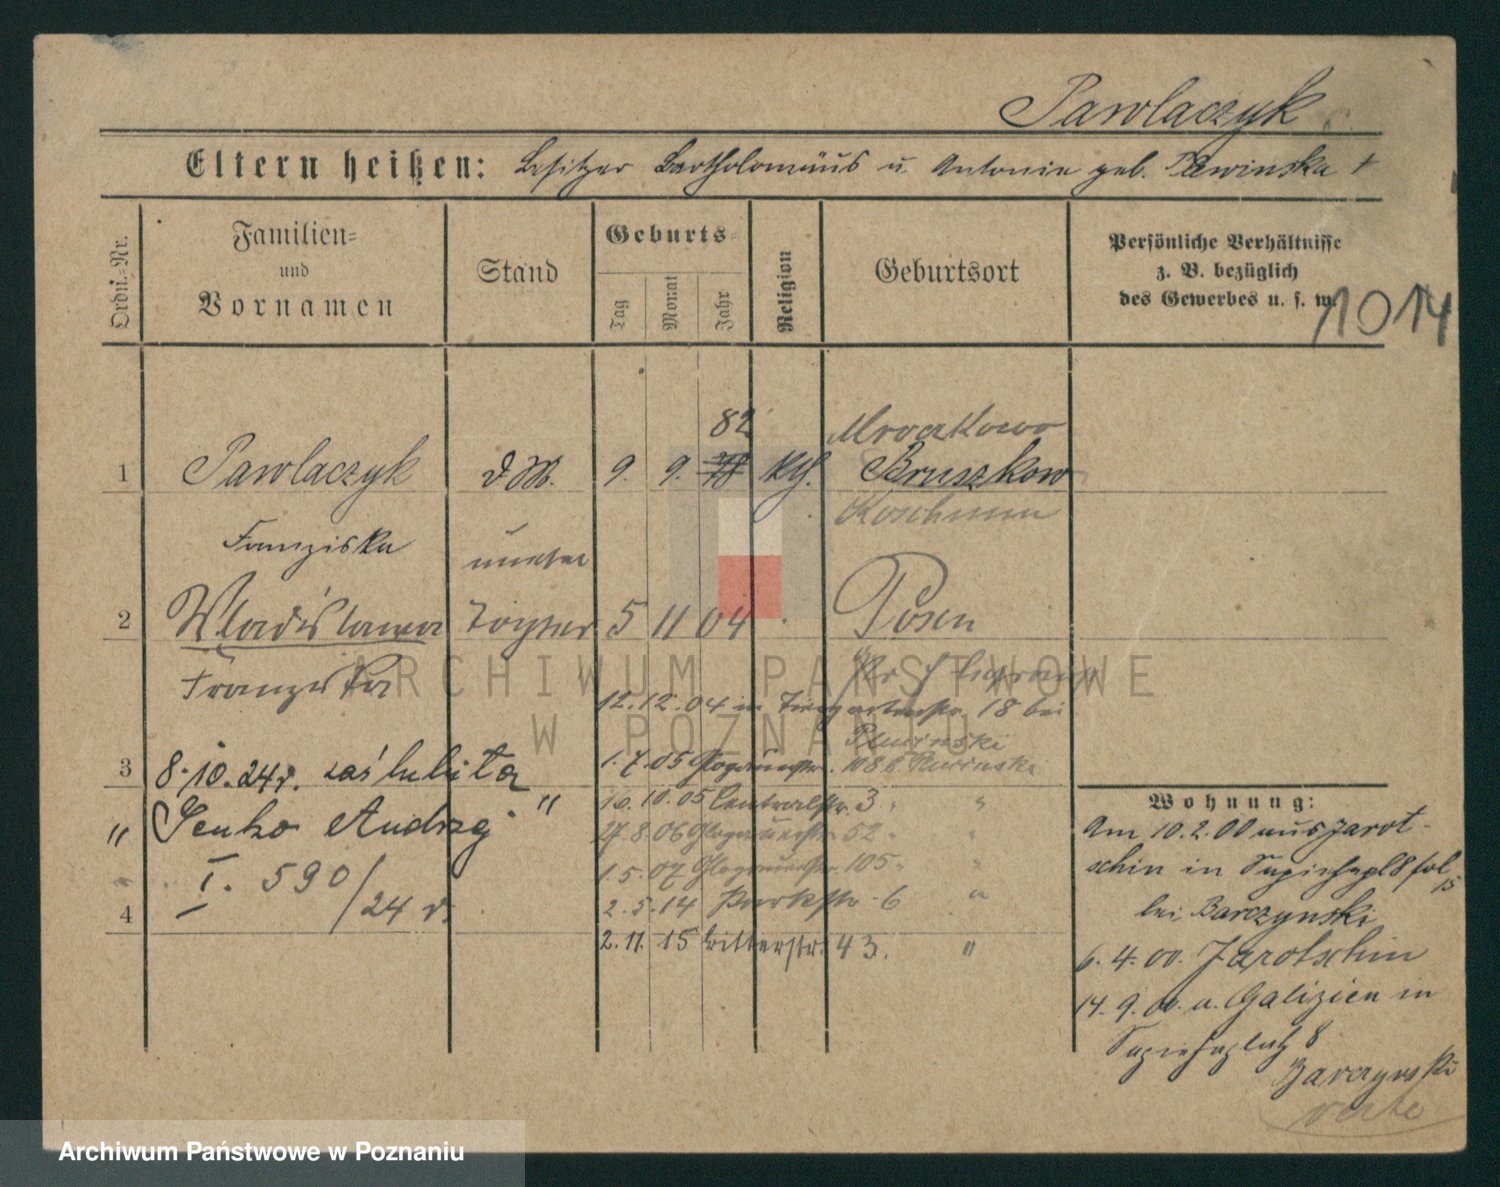 Pawlaczyk
Eltern heißen: Besitzer Bartholomäus u. Antonie geb. Pawinska †
Ordn.=Nr.
Familien=
und
Vornamen
Stand
Geburts=
Tag
Monat
Jahr
Religion
Geburtsort
Persönliche Verhältnisse
z. B. bezüglich
des Gewerbes u. s. w.
1014
82
Mroczkowo
1 Pawlaczyk d. M. 9. 9. kth. Bruszkow
Koschmin
Franziska
2 Wladislawa Tochter 5 11 04 Posen
Franziska
12.12.04 in Tiergartenstr. 18 bei
Plucinski
3 8.10.24r. zaślubiła
1.7.05 Glogauerstr. 108 b. Plucinski
" Senko Andrzej "
16.10.05 Centralstr. 3 "
27.8.06 Glogauerstr. 52 "
I. 590/24 r.
1.5.07 Glogauerstr. 105 "
4
2.5.14 Parkstr. 6 "
2.11.15 Ritterstr. 43. "
Wohnung:
Am 10.2.00 aus Jarot-
schin in Sapiehapl 8
bei Barczynski
6.4.00. Jarotschin
14.9.00. a. Galizien in
Sapiehaplatz 8
Barczynski
verte
ARCHIWUM PAŃSTWOWE
W POZNANIU
Archiwum Państwowe w Poznaniu